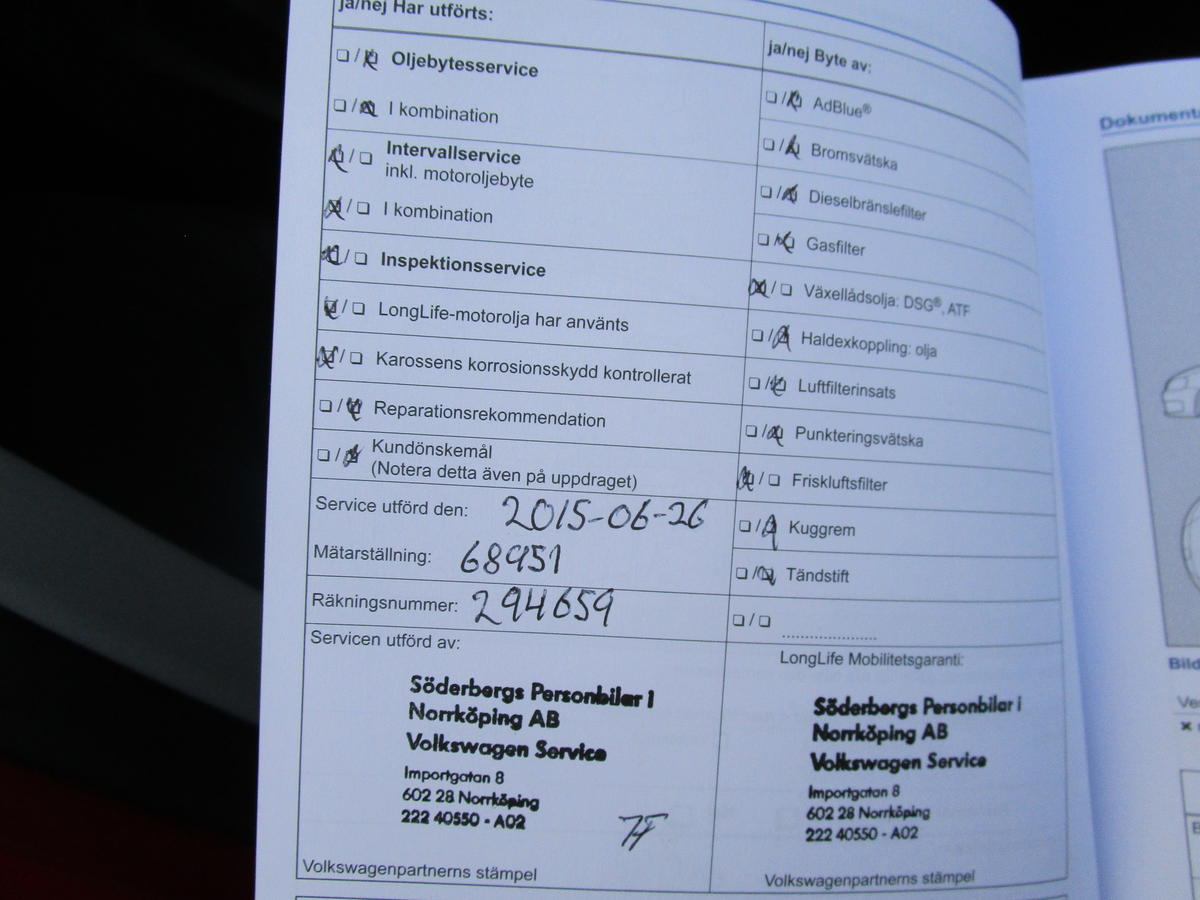 ja/nej Har utförts:
❏ / ❏ Oljebytesservice
❏ / ❏ I kombination
❏ / ❏ Intervallservice
inkl. motoroljebyte
❏ / ❏ I kombination
❏ / ❏ Inspektionsservice
❏ / ❏ LongLife-motorolja har använts
❏ / ❏ Karossens korrosionsskydd kontrollerat
❏ / ❏ Reparationsrekommendation
❏ / ❏ Kundönskemål
(Notera detta även på uppdraget)
Service utförd den: 2015-06-26
Mätarställning: 68951
Räkningsnummer: 294659
Servicen utförd av:
Söderbergs Personbilar i
Norrköping AB
Volkswagen Service
Importgatan 8
602 28 Norrköping
222 40550 - A02
Volkswagenpartnerns stämpel
ja/nej Byte av:
❏ / ❏ AdBlue®
❏ / ❏ Bromsvätska
❏ / ❏ Dieselbränslefilter
❏ / ❏ Gasfilter
❏ / ❏ Växellådsolja: DSG®, ATF
❏ / ❏ Haldexkoppling: olja
❏ / ❏ Luftfilterinsats
❏ / ❏ Punkteringsvätska
❏ / ❏ Friskluftsfilter
❏ / ❏ Kuggrem
❏ / ❏ Tändstift
❏ / ❏ ....................
LongLife Mobilitetsgaranti:
Söderbergs Personbilar i
Norrköping AB
Volkswagen Service
Importgatan 8
602 28 Norrköping
222 40550 - A02
Volkswagenpartnerns stämpel
Dokument
Bild